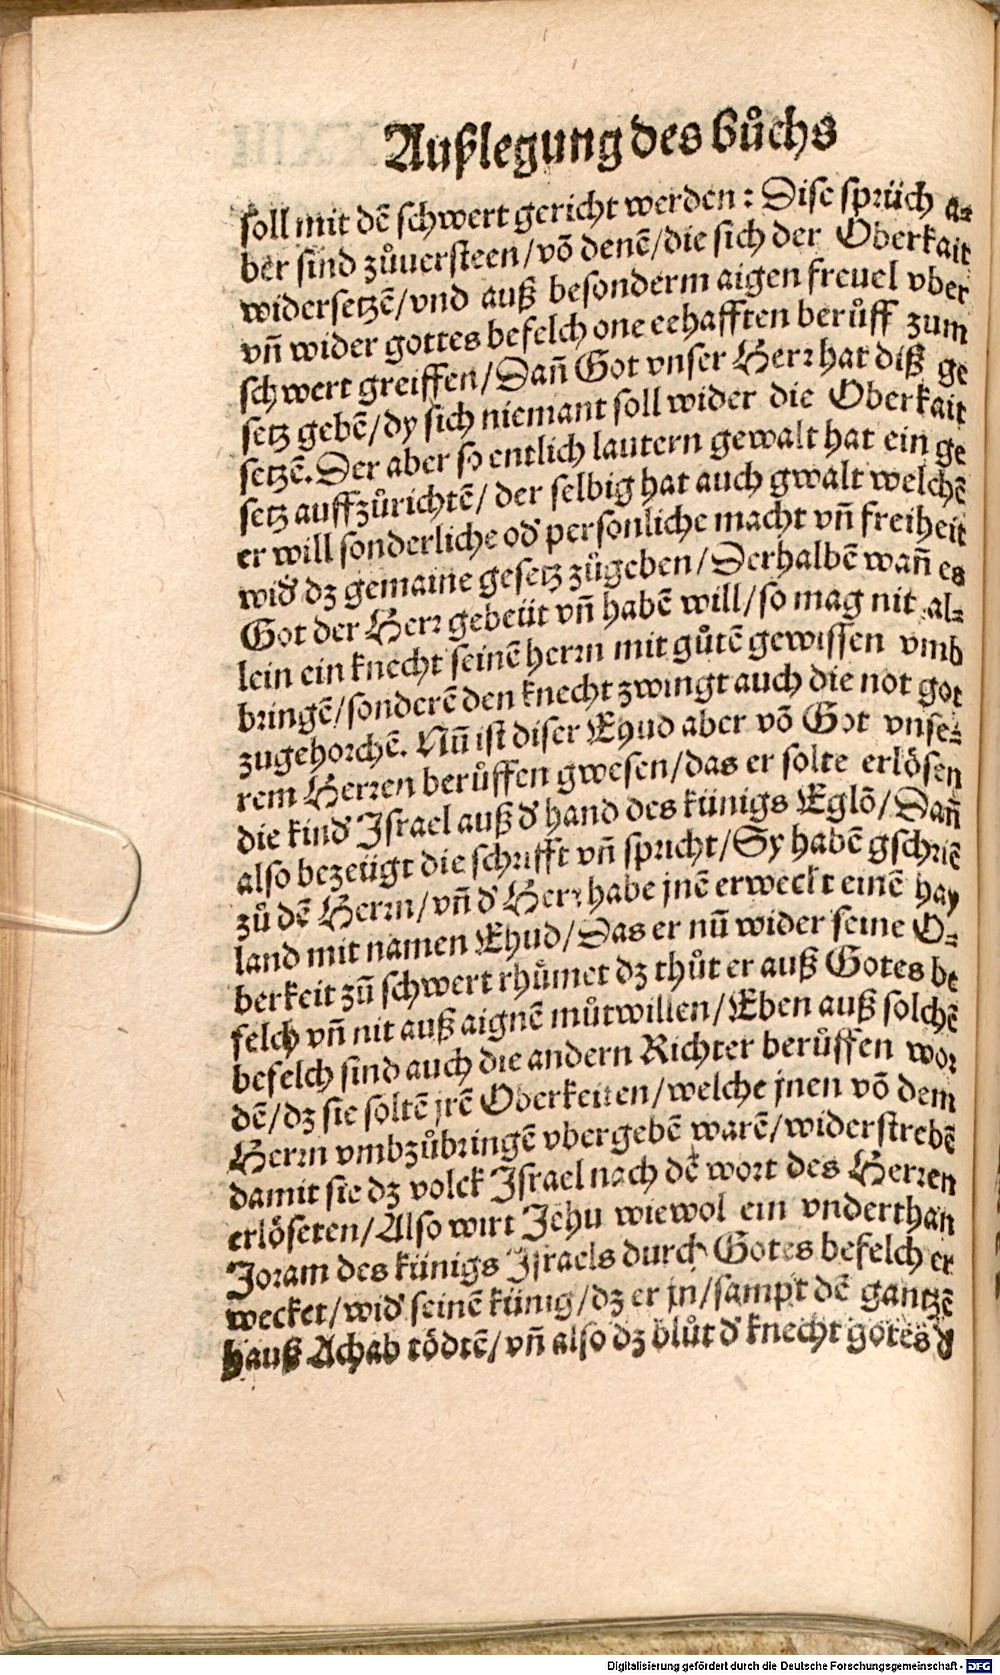 Außlegung des bůchs
soll mit dē schwert gericht werden: Dise sprüch a-
ber sind zůuersteen/vō denē/die sich der Oberkait
widersetzē/vnd auß besonderm aigen freuel vber
vñ wider gottes befelch one eehafften berůff zum
schwert greiffen/Dañ Got vnser Herr hat diß ge
setz gebē/dy sich niemant soll wider die Oberkait
setzē. Der aber so entlich lautern gewalt hat ein ge
setz auffzůrichtē/ der selbig hat auch gwalt welchē
er will sonderliche od' personliche macht vñ freiheit
wid' dz gemaine gesetz zůgeben/Derhalbē wañ es
Got der Herr gebeüt vñ habē will/so mag nit al-
lein ein knecht seinē herrn mit gůtē gewissen vmb
bringē/sonderē den knecht zwingt auch die not got
zugehorchē. Nū ist diser Ehud aber vō Got vnse-
rem Herren berůffen gwesen/das er solte erlösen
die kind' Israel auß d' hand des künigs Eglō/Dañ
also bezeügt die schrifft vñ spricht/Sy habē gschriē
zů dē Herrn/vñ d' Herr habe jnē erweckt einē hay
land mit namen Ehud/Das er nū wider seine O-
berkeit zū schwert rhůmet dz thůt er auß Gotes be
felch vñ nit auß aignē můtwillen/Eben auß solchē
befelch sind auch die andern Richter berůffen wor
dē/dz sie soltē jrē Oberkeiten/welche jnen vō dem
Herrn vmbzůbringē vbergebē warē/widerstrebē
damit sie dz volck Israel nach dē wort des Herren
erlöseten/Also wirt Jehu wiewol ein vnderthan
Joram des künigs Israels durch Gotes befelch er
wecket/wid' seinē künig/dz er jn/sampt dē gantzē
hauß Achab tödtē/vñ also dz blůt d' knecht gotes d'
Digitalisierung gefördert durch die Deutsche Forschungsgemeinschaft - DFG